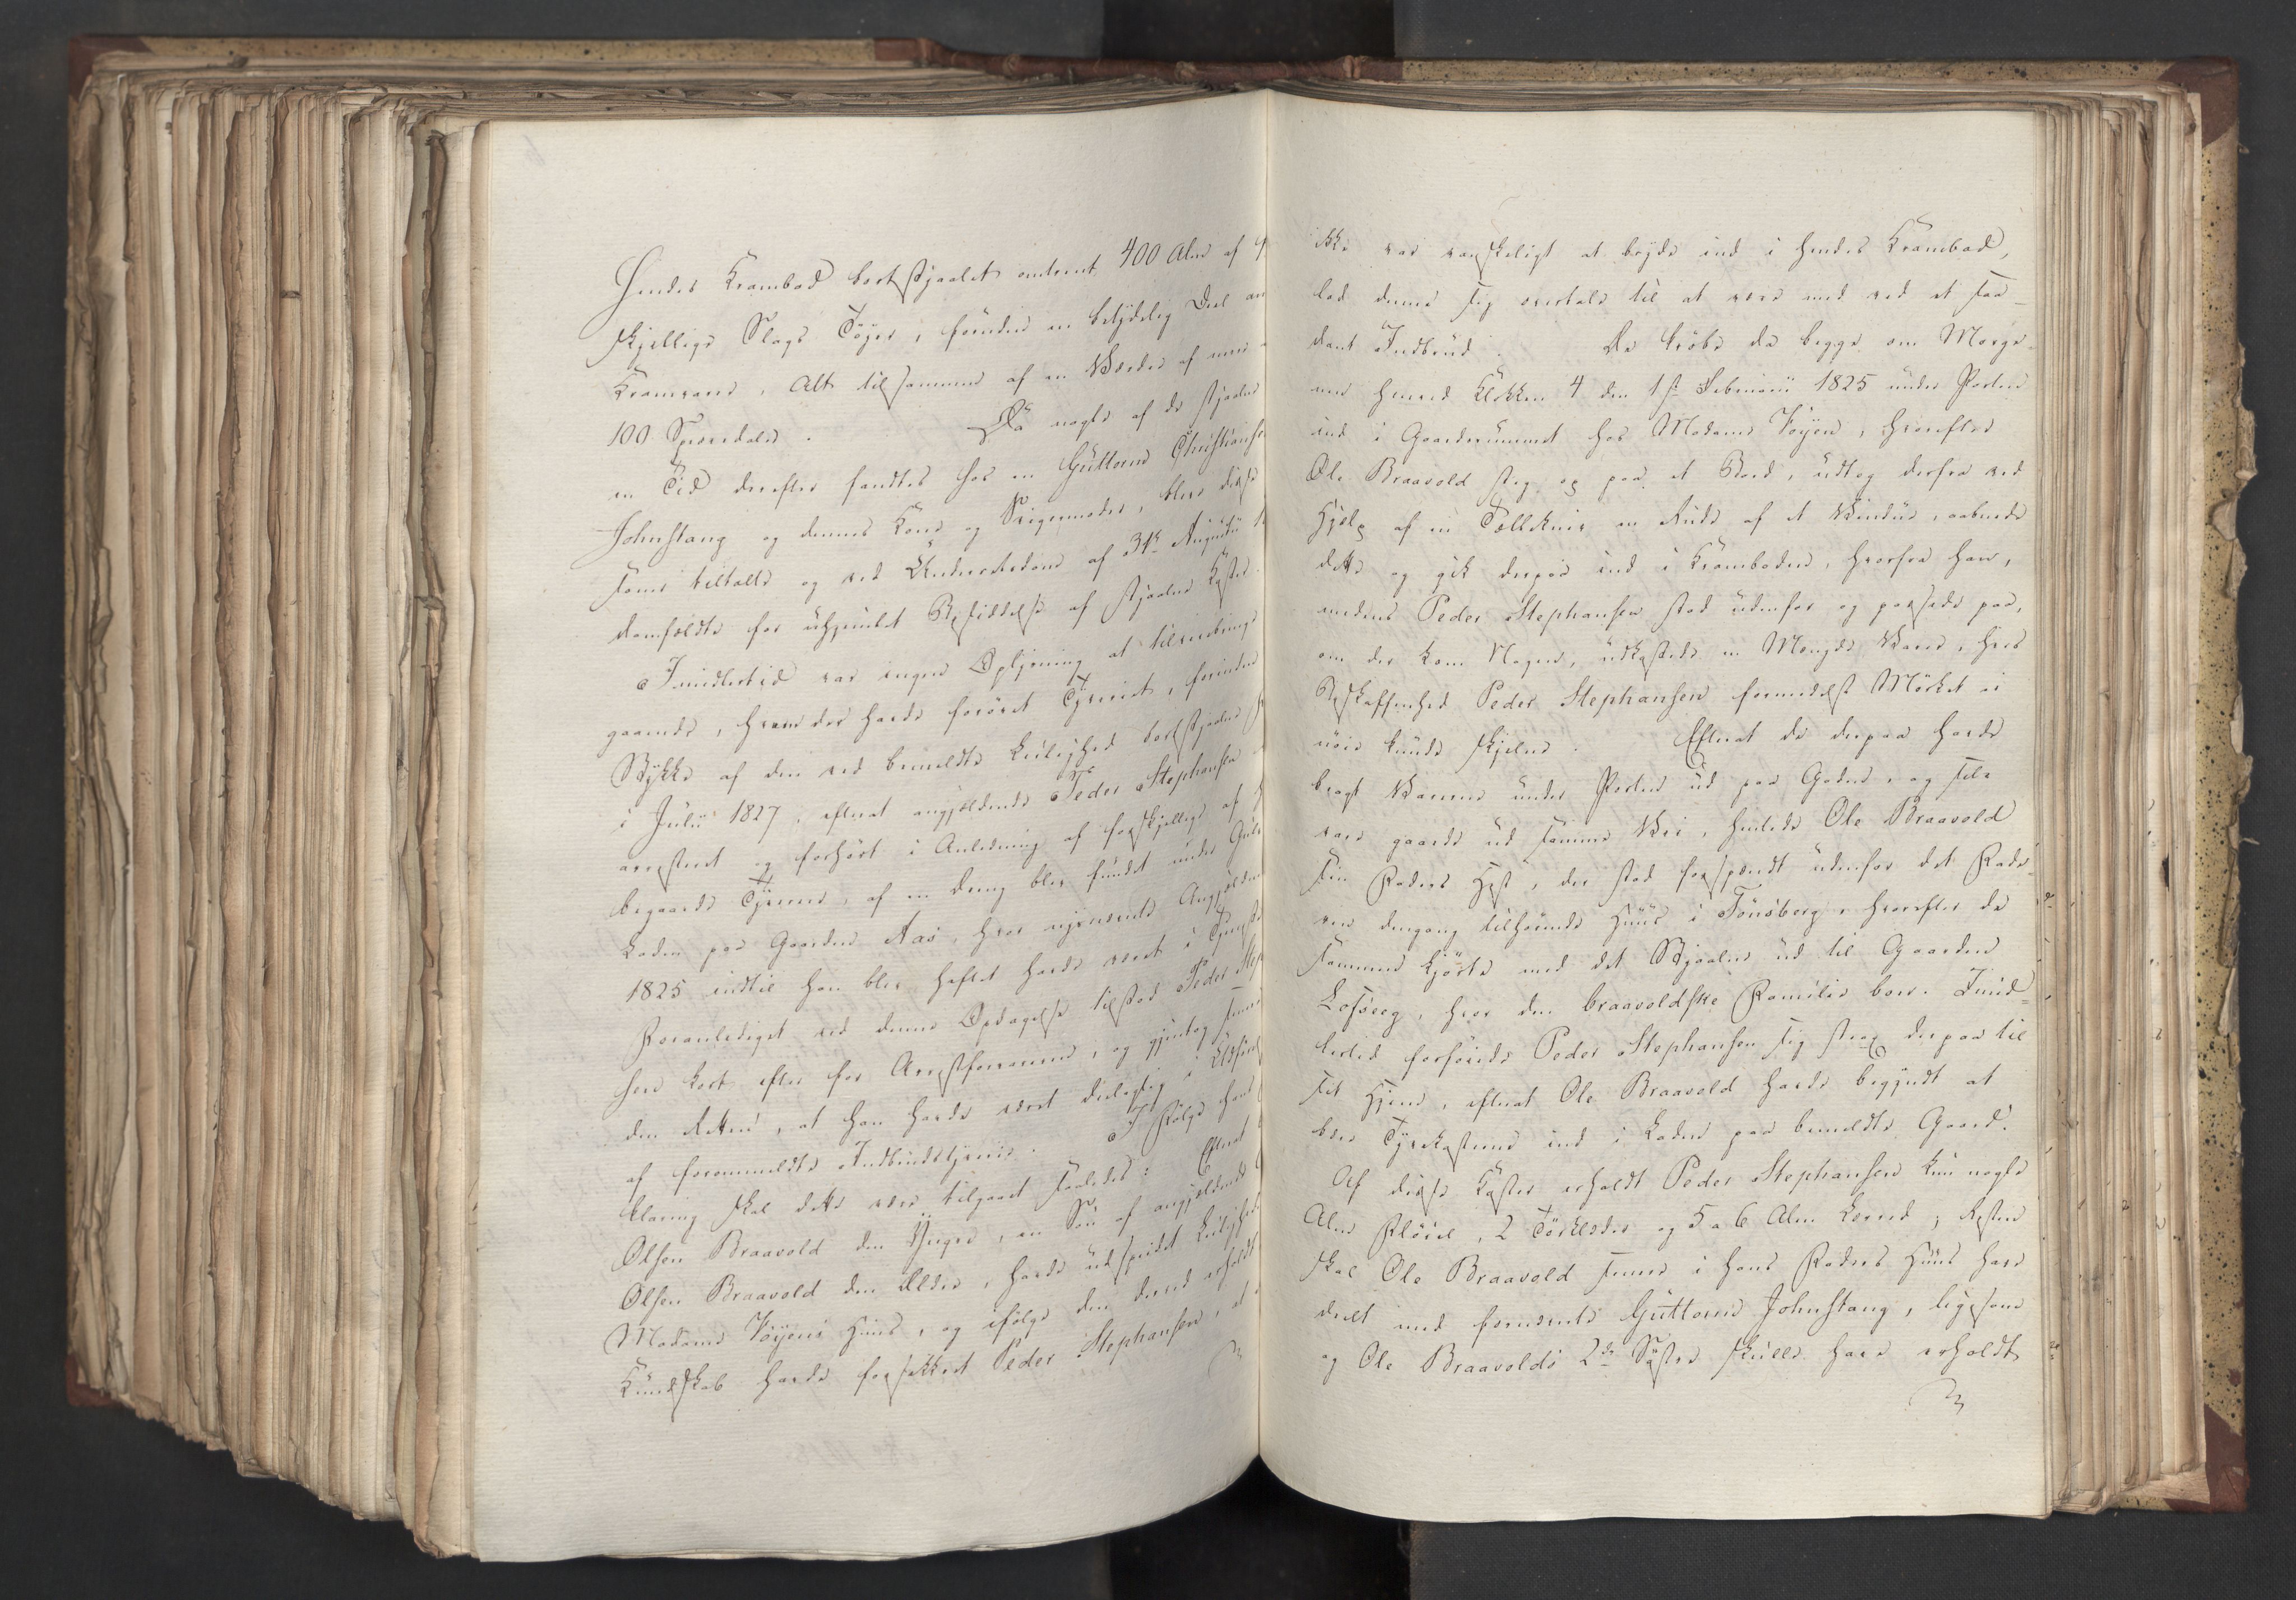 Hendes Krambod bortstjaalet omtrent 400 Alne af
skjellige Slags Töyer, foruden en betydelig Deel an
Kramvare, Alt tilsammen af en Værdie af mere
100 Speciedaler. Da nogle af de stjaalne
en Tid derefter fandtes hos en Guttorm Christianse
Johnstang og dennes Kone og Svigermoder, bleve disse
som tiltalte og ved Underretsdom af 31te Augustii
domfældte for uhjemlet Besiddelse af stjaalne Koster.
Imidlertid var ingen Oplysning at tilveiebringe
gaaende, hvem der havde forövet Tyveriet, forinden
Stykke af den ved bemeldte Leilighed bortstjaalne
i Julii 1827, efterat angjældende Peder Stephansen
arresteret og forhört i Anledning af forskjellige af
begaaede Tyverier, af en Dreng blev fundet under Gul
Laden paa Gaarden Aas, hvor nysnævnte Angjælden
1825 indtil han blev heftet havde været i Tjeneste
Foranlediget ved denne Opdagelse tilstod Peder Step
sen kort efter for Arrestforvareren, og gjentog siden
den Retten, at han havde været deelagtig i Udförel
af forommeldte Indbrudstyverie. I Fölge hans
klaring skal dette være tilgaaet saaledes: Efterat
Olsen Braavold den Yngre, en Sön af angjældende
Olsen Braavold den Ældre, havde udspeidet Leilighede
Madame Vöyens Huus, og ifölge den derved erholdte
Kundskab havde forsikkret Peder Stephansen, at
ikke var vanskeligt at bryde ind i hendes Krambod,
lod denne sig overtale til at være med ved et saa-
dant Indbrud. De kröbe da begge om Morge-
nen henved Klokken 4 den 1ste Februarii 1825 under Porten
ind i Gaardsrummet hos Madame Vöyen, hvorefter
Ole Braavold steg op paa et Bord, udtog derfra ved
Hjelp af en Tollekniv en Rude af et Vindue, aabnede
dette og gik derpaa ind i Kramboden, hvorfra han,
medens Peder Stephansen stod udenfor og passede paa,
om der kom Nogen, udkastede en Mængde Varer, hvis
Beskaffenhed Peder Stephansen formedelst Mörket ei
nöie kunde skjelne. Efterat de derpaa havde
bragt Varerne under Porten ud paa Gaden, og selv
vare gaaede ud samme Vei, hentede Ole Braavold
sin Faders Hest, der stod forspændt udenfor det Fade-
ren dengang tilhörende Huus i Tönsberg, hvorefter de
sammen kjörte med det Stjaalne ud til Gaarden
Lofseeg, hvor den braavoldske Familie boer. Imid-
lertid forföiede Peder Stephansen sig strax derpaa til
sit Hjem, efterat Ole Braavold havde begyndt at
bære Tyvekosterne ind i Laden paa bemeldte Gaard.
Af disse Koster erholdt Peder Stephansen kun nogle
Alne Flöiel, 2 Törklæder og 5 a 6 Alne Lerred; Resten
skal Ole Braavold senere i hans Faders Huus have
deelt med fornævnte Guttorm Johnstang, ligesom
og Ole Braavolds 2de Söstre skulle have erholdt